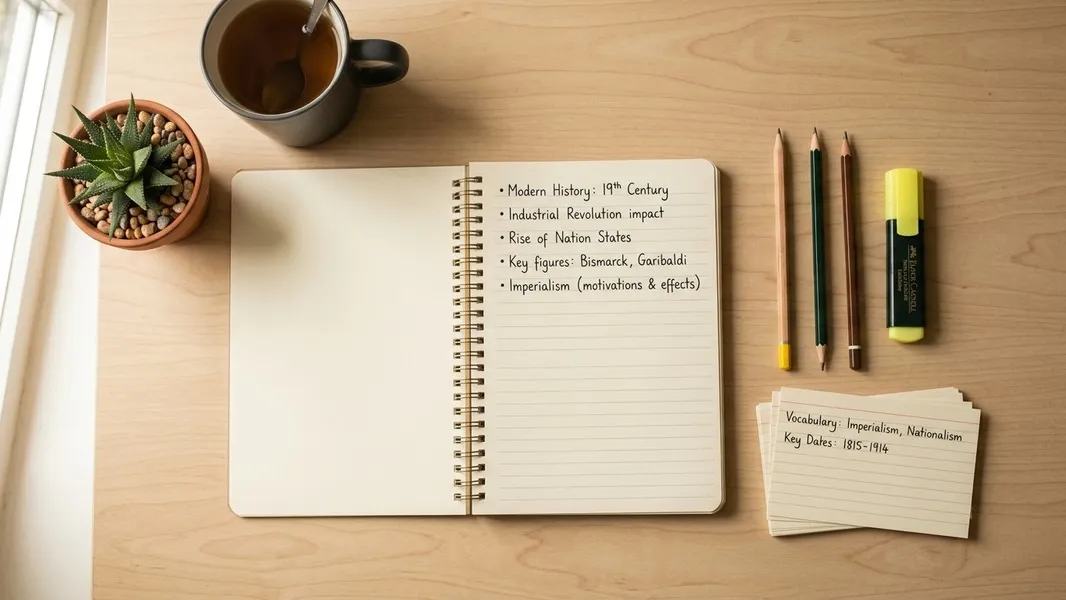 • Modern History: 19th Century
• Industrial Revolution impact
• Rise of Nation States
• Key figures: Bismarck, Garibaldi
• Imperialism (motivations & effects)
Vocabulary: Imperialism, Nationalism
Key Dates: 1815-1914